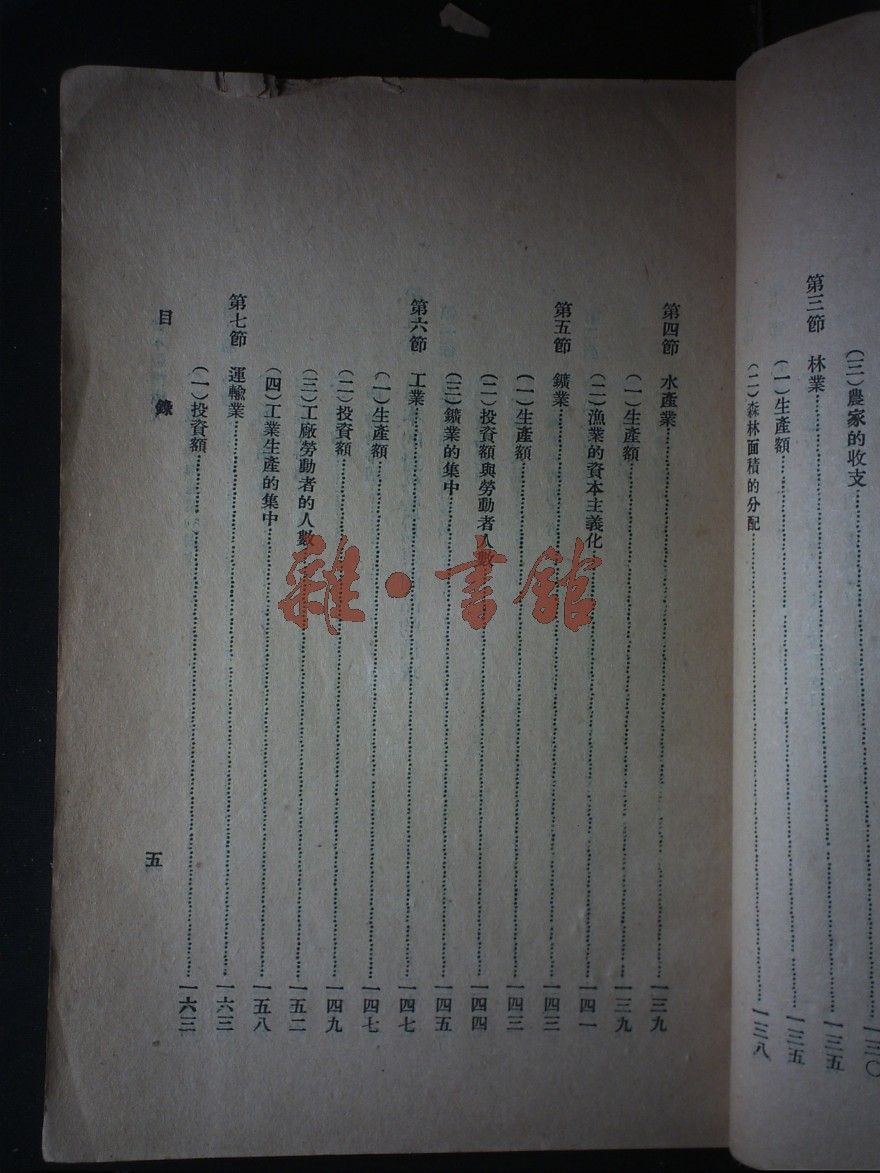 （三）農家的收支……一三〇
第三節　林業……一三五
（一）生產額……一三五
（二）森林面積的分配……一三八
第四節　水產業……一三九
（一）生產額……一三九
（二）漁業的資本主義化……一四一
第五節　鑛業……一四三
（一）生產額……一四三
（二）投資額與勞動者人數……一四四
（三）鑛業的集中……一四五
第六節　工業……一四七
（一）生產額……一四七
（二）投資額……一四九
（三）工廠勞動者的人數……一五二
（四）工業生產的集中……一五八
第七節　運輸業……一六三
（一）投資額……一六三
目　錄
五
雜·書館